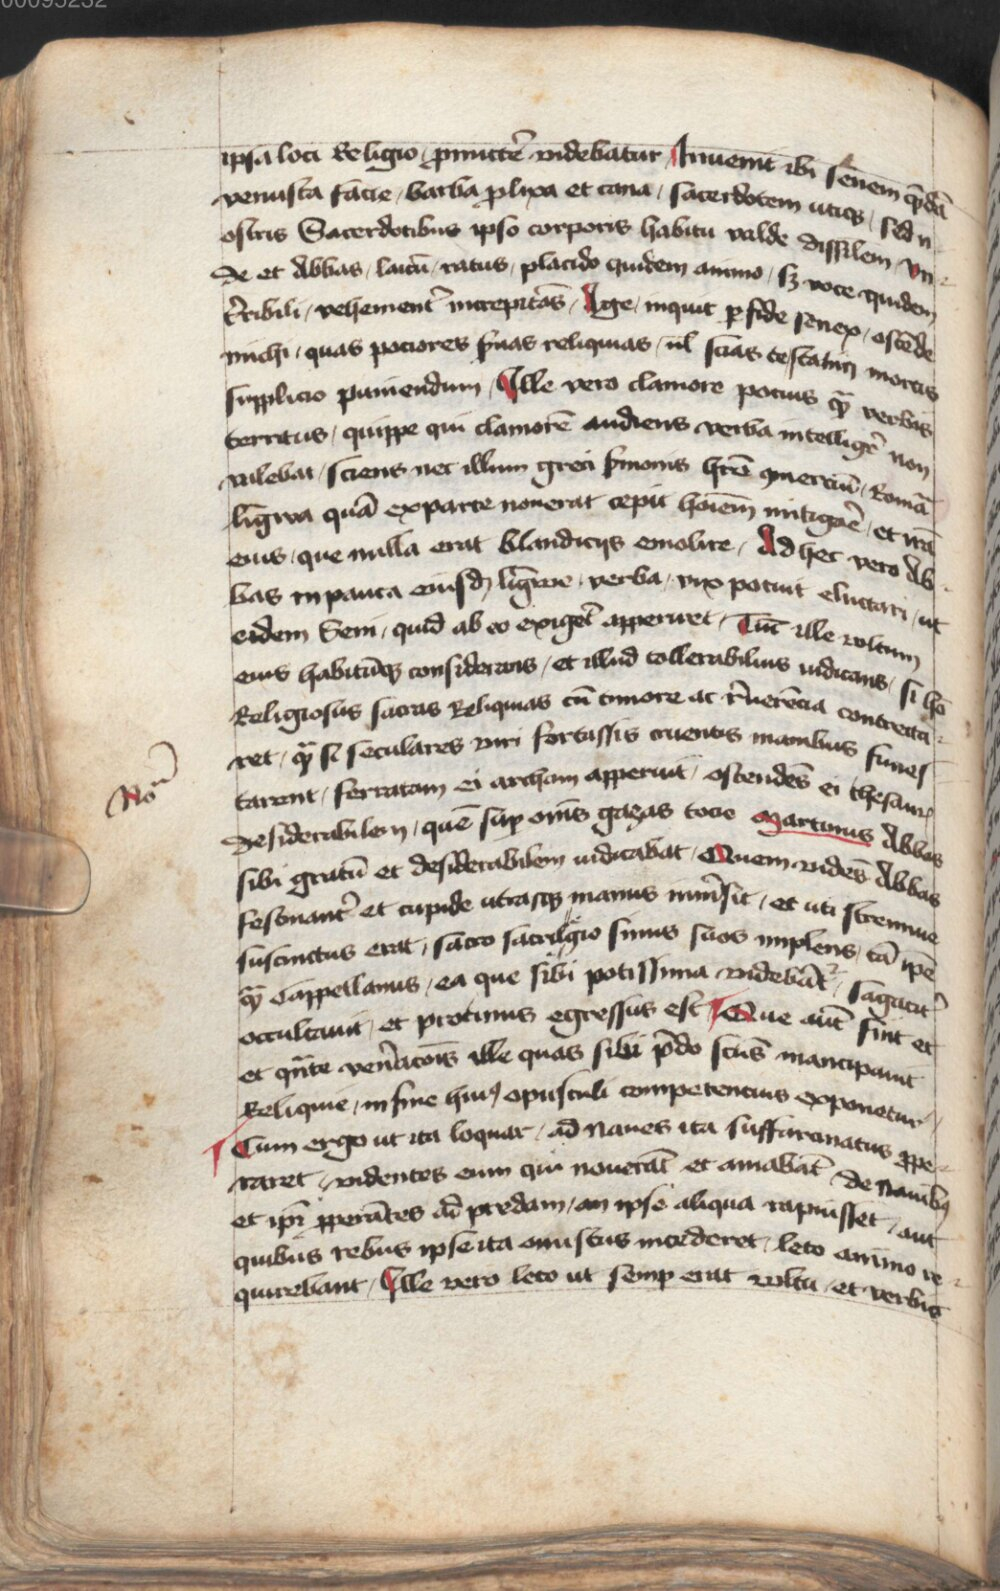 00095252
ipsa loci Religio, p̄mitte᷑ videbatur Inuenit ibi senem q̄ndā
venusta facie, barba plixa et cana, sacerdotem utiq, sed n
ostris Sacerdotibus ipso corporis habitu valde dissilem, vn
de et Abbas, laicū, ratus, placido quidem animo, sꝫ voce quidem
t̄ribili, vehement᷑ increpitās, Age, inquit pfide senex, oste̅de
michi, quas pociores s̄uas reliquias, ul̄ scias te statim mortis
supplicio puniendum, Ille vero clamore potius q̄ verbis
territus, quippe qui clamorē audiens verba intellig᷑e non
valebat, sciens nec illum greci s̄monis hr̄e ꝯmerciū, Romā
lingwa quā exparte nouerat cepit hoīem mitigar̄e, et irā
eius, que nulla erat blandicijs emolire, Ad hec vero Ab
bas in pauca eiusdꝫ lingwe, verba, vix potuit eluctari, ut
eidem Seni, quid ab eo exiget᷑ apperiret, Tūc ille voltum
eius habitūq considerans, et illud tollerabilius iudicans, si hō
Religiosus sacras Reliquias cū timore ac r̄uerēcia contrecta
ret, q̄ si seculares viri fortassis cruentis manibus funes
tarent, ferratam ei archam apperuit, ostendēs ei thesaur̄
No
desiderabilem, quē sup om̄s gazas tocie Martinus Abbas
sibi gratū et desiderabilem iudicabat, Quem vidēs Abbas
festinant᷑ et cupide utrasq manus im̄sit, et uti strennue
suscinctus erat, sacro sacrilegio sinus suos implens, tā ipē
q̄ Cappellanus, ea que sibi potissima videbāt᷑, sagacit᷑
occultauit, et protinus egressus est, Que aūt sint et
et q̄nte ven̄acōis ille quas sibi p̄do sc̄us mancipauit
Reliquie, in fine huiꝰ opusculi competencius exponetur
Cum ergo ut ita loquar, ad naues ita suffarcinatus ꝓpe
raret, videntes eum qui nouerāt et amabāt de nauibꝫ
et ipī ꝓperātes ad predam, an ipse aliqua rapuisset, aut
quibus rebus ipse ita onustus incederet, leto animo re
quirebant, Ille vero leto ut semp erat voltu, et verbis